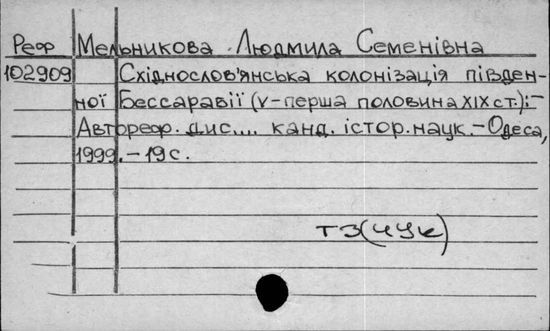 Реф Мельникова Людмила Семенівна
102909 Східнослов'янська колонізація півден-
ної Бессаравії (V-перша половина XIX ст.):-
Автореф. дис.... канд. істор. наук.-Одеса,
1999.-19с.
ТЗ(4Ук)